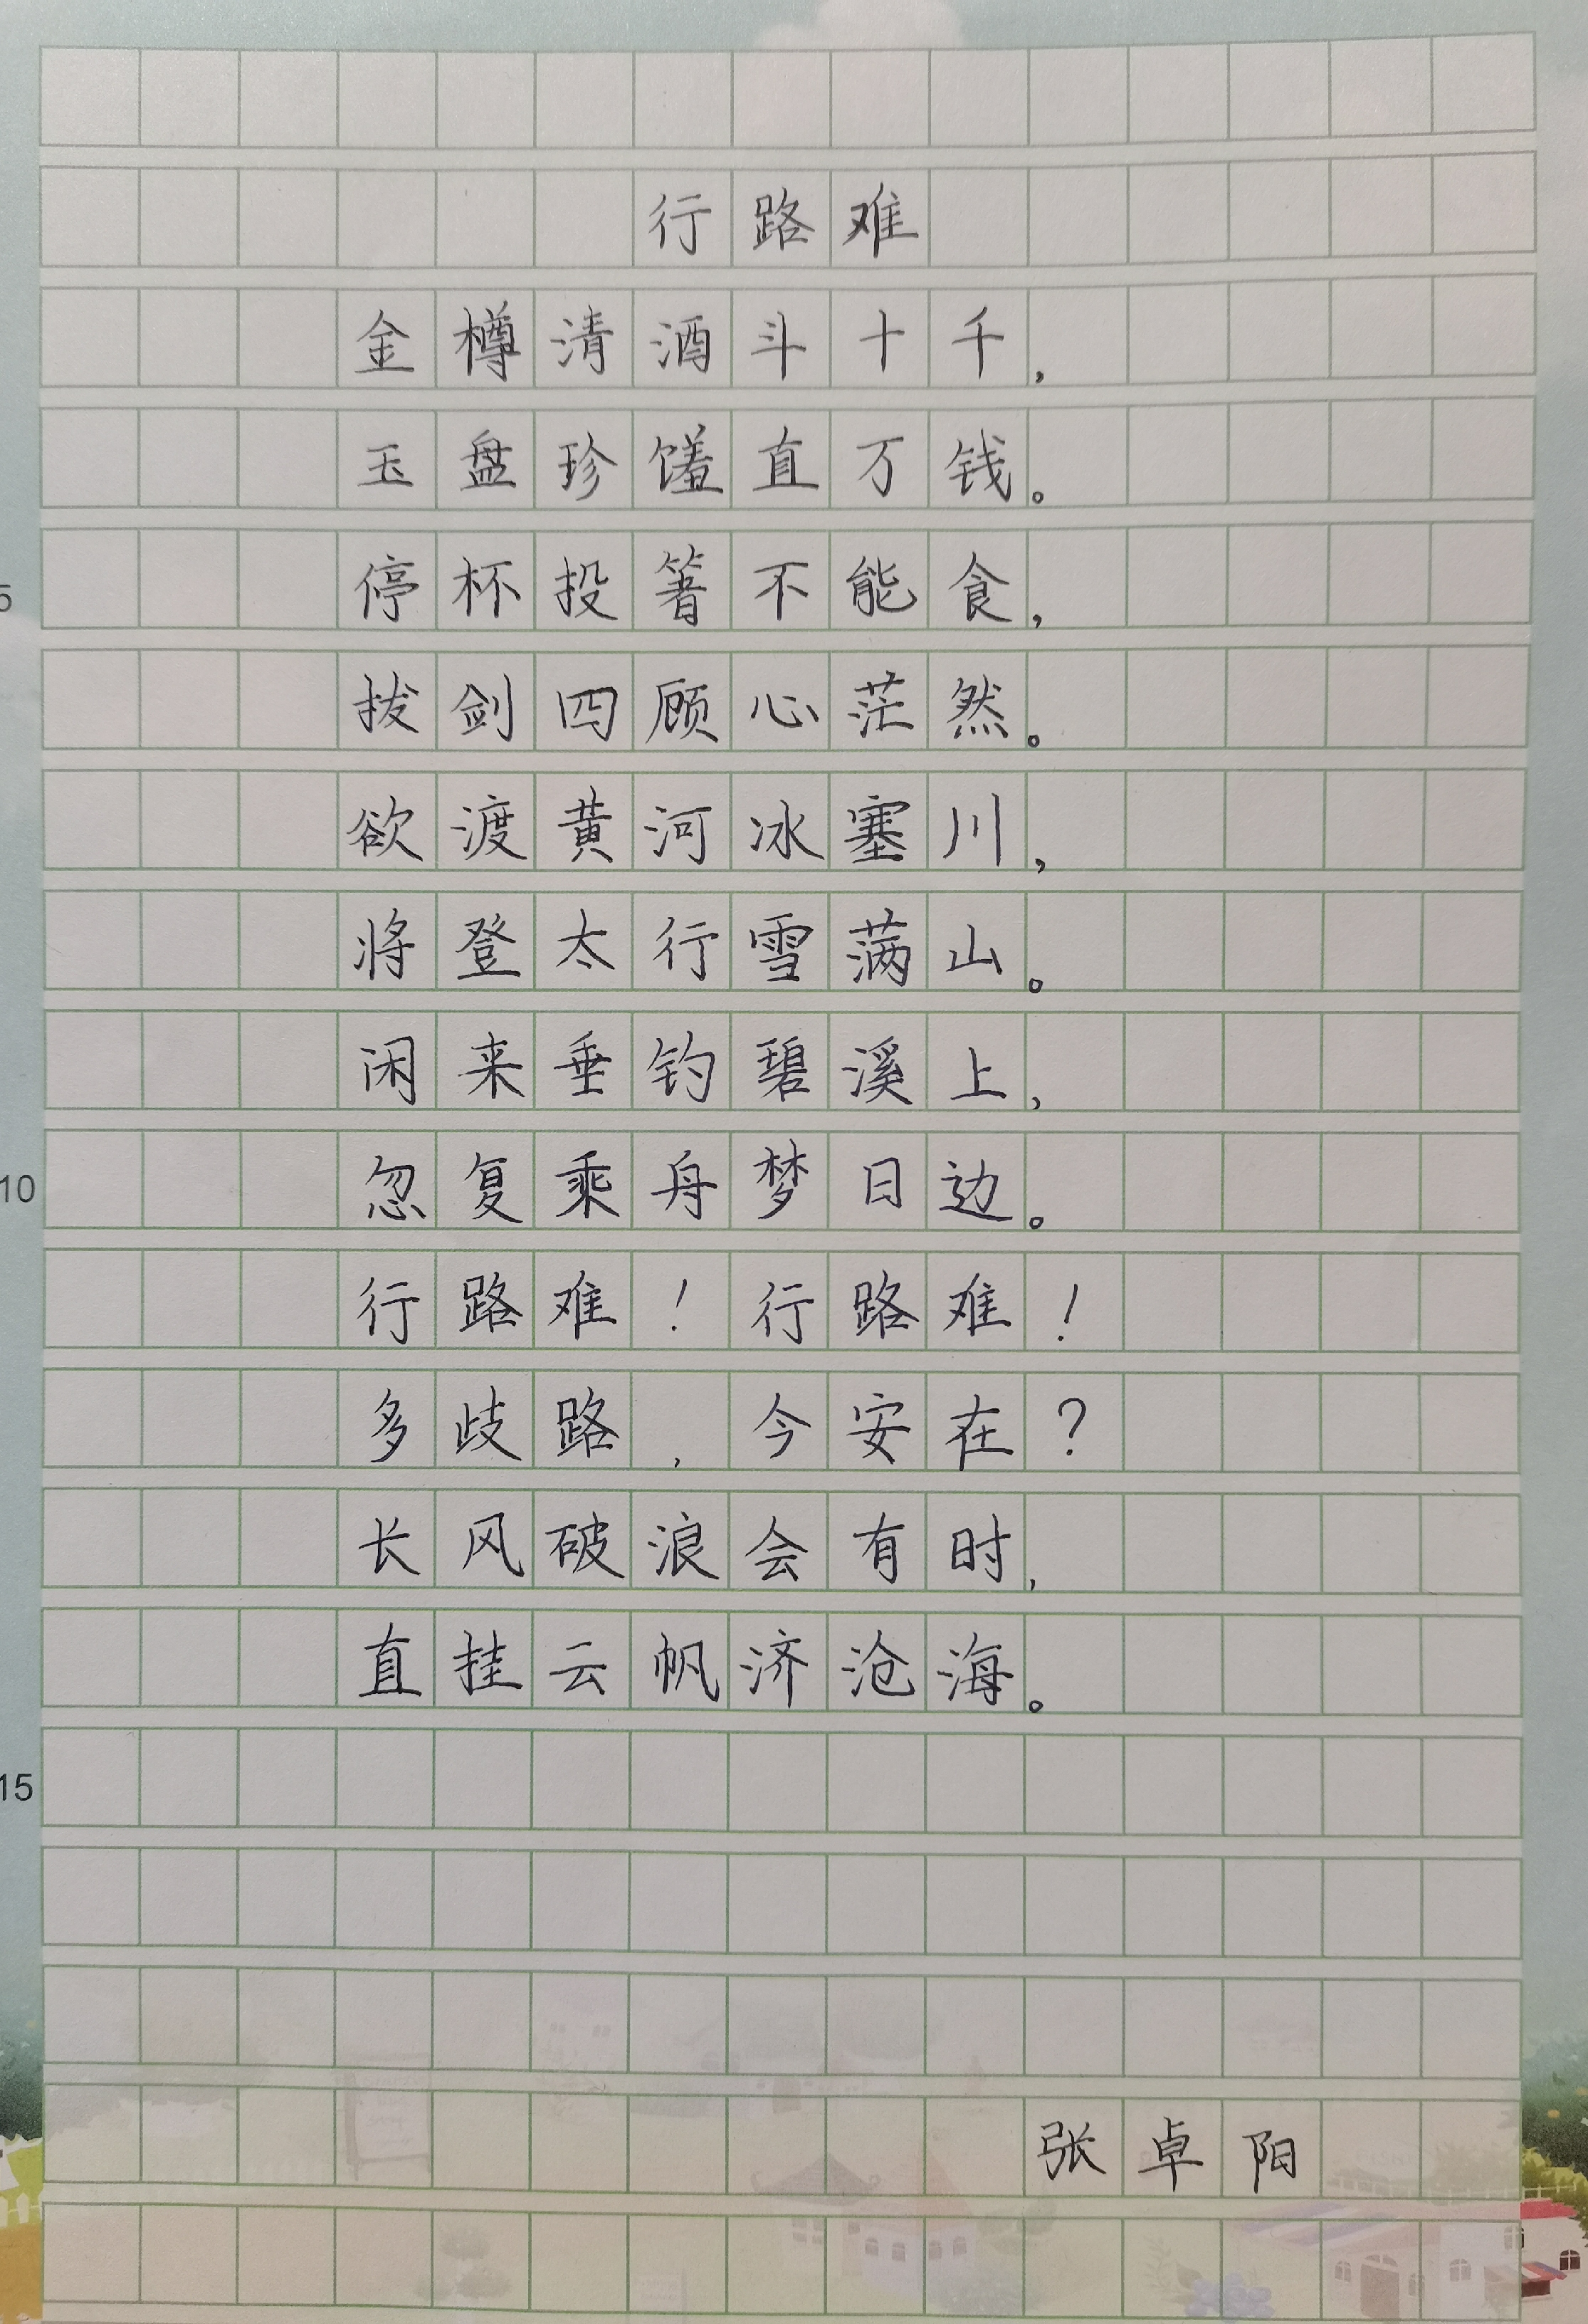 行路难
金樽清酒斗十千,
玉盘珍馐直万钱。
5
停杯投箸不能食,
拔剑四顾心茫然。
欲渡黄河冰塞川,
将登太行雪满山。
闲来垂钓碧溪上,
10
忽复乘舟梦日边。
行路难!行路难!
多歧路,今安在?
长风破浪会有时,
直挂云帆济沧海。
15
张卓阳